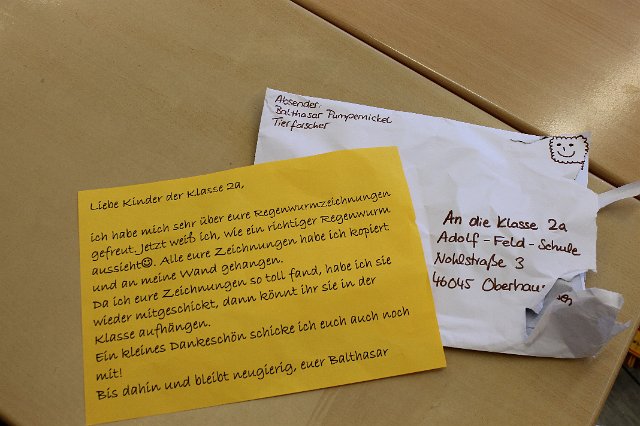 Absender:
Balthasar Pumpernickel
Tierforscher
An die Klasse 2a
Adolf-Feld-Schule
Nohlstraße 3
46045 Oberhausen
Liebe Kinder der Klasse 2a,
ich habe mich sehr über eure Regenwurmzeichnungen
gefreut. Jetzt weiß ich, wie ein richtiger Regenwurm
aussieht☺. Alle eure Zeichnungen habe ich kopiert
und an meine Wand gehangen.
Da ich eure Zeichnungen so toll fand, habe ich sie
wieder mitgeschickt, dann könnt ihr sie in der
Klasse aufhängen.
Ein kleines Dankeschön schicke ich euch auch noch
mit!
Bis dahin und bleibt neugierig, euer Balthasar